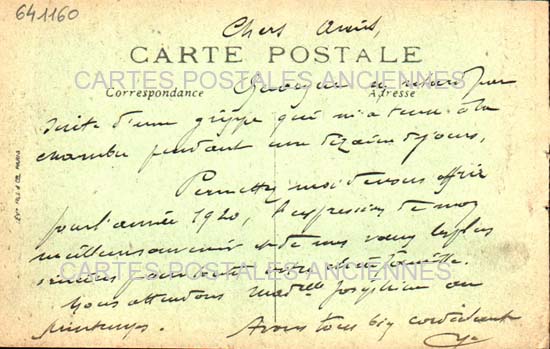 641160
Chers Amis,
CARTE POSTALE
CARTES POSTALES ANCIENNES
Correspondance
Adresse
Quoique en retard par
suite d'une grippe qui m'a tenu à la
chambre pendant une dizaine de jours,
Permettez moi de vous offrir
pour l'année 1920, l'expression de mes
meilleurs souvenirs et de mes vœux les plus
sincères pour toute votre famille.
CARTES POSTALES ANCIENNES
Nous attendons Mad elle Joséphine au
printemps. A vous tous bien cordialement